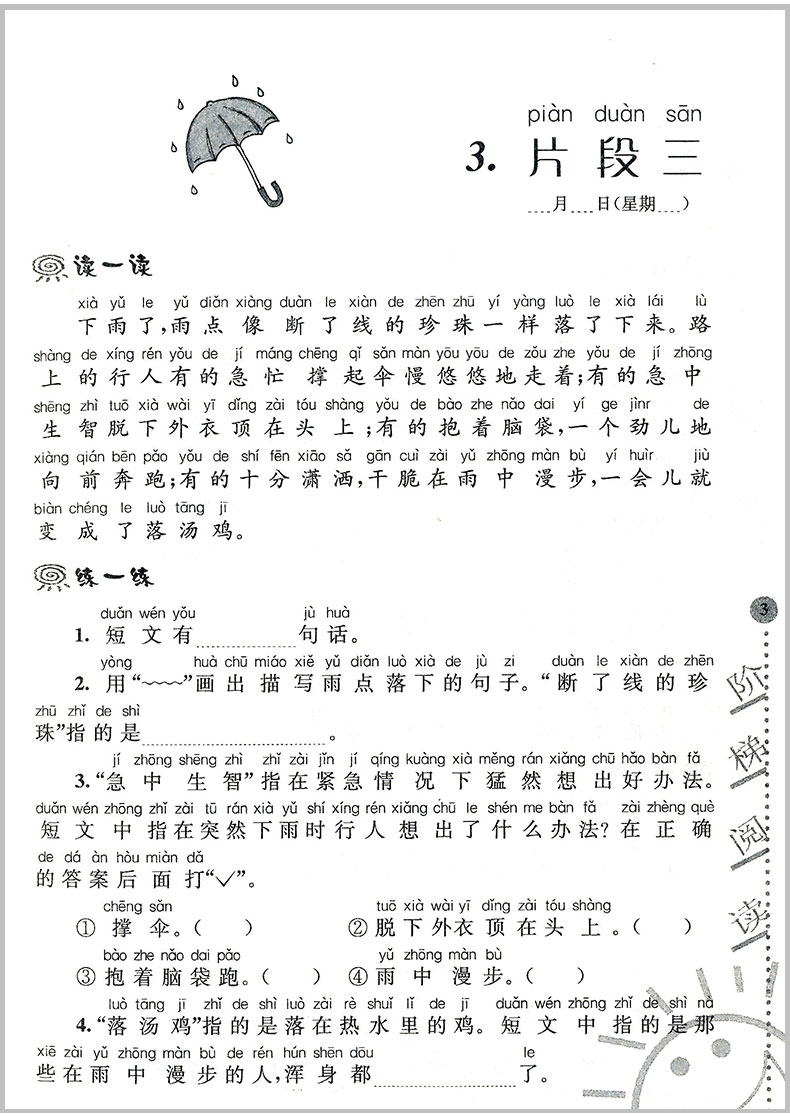 piàn duàn sān
3. 片段三
月 日(星期 )
读一读
xià yǔ le yǔ diǎn xiàng duàn le xiàn de zhēn zhū yí yàng luò le xià lái lù
下雨了,雨点像断了线的珍珠一样落了下来。路
shàng de xíng rén yǒu de jí máng chēng qǐ sǎn màn yōu yōu de zǒu zhe yǒu de jí zhōng
上的行人有的急忙撑起伞慢悠悠地走着;有的急中
shēng zhì tuō xià wài yī dǐng zài tóu shàng yǒu de bào zhe nǎo dai yí ge jìnr de
生智脱下外衣顶在头上;有的抱着脑袋,一个劲儿地
xiàng qián bēn pǎo yǒu de shí fēn xiāo sǎ gān cuì zài yǔ zhōng màn bù yí huìr jiù
向前奔跑;有的十分潇洒,干脆在雨中漫步,一会儿就
biàn chéng le luò tāng jī
变成了落汤鸡。
练一练
duǎn wén yǒu jù huà
1. 短文有 句话。
yòng huà chū miáo xiě yǔ diǎn luò xià de jù zi duàn le xiàn de zhēn
2. 用“﹏﹏”画出描写雨点落下的句子。“断了线的珍
zhū zhǐ de shì
珠”指的是 。
jí zhōng shēng zhì zhǐ zài jǐn jí qíng kuàng xià měng rán xiǎng chū hǎo bàn fǎ
3. “急中生智”指在紧急情况下猛然想出好办法。
duǎn wén zhōng zhǐ zài tū rán xià yǔ shí xíng rén xiǎng chū le shén me bàn fǎ zài zhèng què
短文中指在突然下雨时行人想出了什么办法?在正确
de dá àn hòu miàn dǎ
的答案后面打“✓”。
chēng sǎn tuō xià wài yī dǐng zài tóu shàng
① 撑伞。( ) ② 脱下外衣顶在头上。( )
bào zhe nǎo dai pǎo yǔ zhōng màn bù
③ 抱着脑袋跑。( ) ④ 雨中漫步。( )
luò tāng jī zhǐ de shì luò zài rè shuǐ lǐ de jī duǎn wén zhōng zhǐ de shì nà
4. “落汤鸡”指的是落在热水里的鸡。短文中指的是那
xiē zài yǔ zhōng màn bù de rén hún shēn dōu le
些在雨中漫步的人,浑身都 了。
3
阶梯阅读